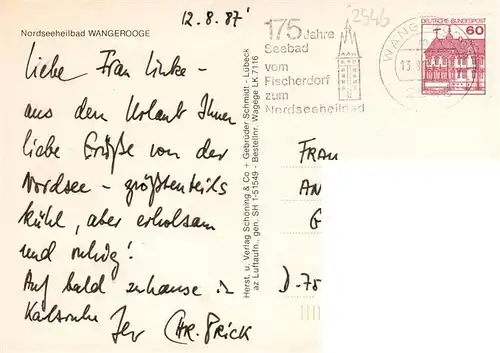 12.8.87'
2546
Nordseeheilbad WANGEROOGE
Liebe Frau Linke -
aus dem Urlaub Ihnen
liebe Grüße von der
Nordsee - größtenteils
kühl, aber erholsam
und ruhig!
Auf bald zuhause in
Karlsruhe Ihr CHR. PRICK
Herst. u. Verlag Schöning & Co + Gebrüder Schmidt - Lübeck
az Luftaufn., gen. SH 1-51549 - Bestellnr. Wagege LK 7116
175 Jahre
Seebad
vom
Fischerdorf
zum
Nordseeheilbad
WANG
13.8
DEUTSCHE BUNDESPOST
60
FRAU
AN
G
D-75